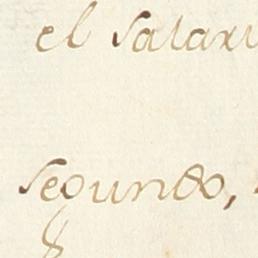 el salari
segundo,